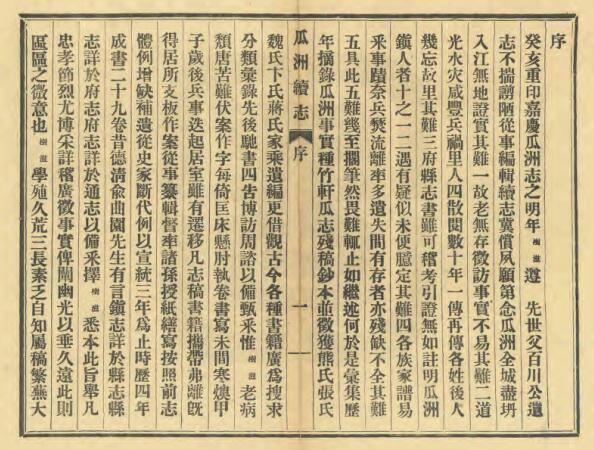 序
癸亥重印嘉慶瓜洲志之明年樹滋遵先世父百川公遺
志不揣謭陋從事編輯續志冀償夙願第念瓜洲全城盡坍
入江無地證實其難一故老無存徵訪事實不易其難二道
光水灾咸豐兵禍里人四散閱數十年一傳再傳各姓後人
幾忘故里其難三府縣志書雖可稽考引證無如註明瓜洲
鎭人者十之一二遇有疑似未便臆定其難四各族家譜易
釆事蹟奈兵燹流離率多遺失間有存者亦殘缺不全其難
五具此五難幾至擱筆然畏難輒止如繼述何於是彙集歷
年摘錄瓜洲事實種竹軒瓜志殘稿鈔本並徵獲熊氏張氏
瓜洲續志
序
一
魏氏卞氏蔣氏家乘遺編更借觀古今各種書籍廣爲搜求
分類彙錄先後馳書四古博訪周諮以備甄釆惟樹滋老病
頹唐苦難伏案作字每倚匡床懸肘執卷書寫未間寒燠甲
子歲後兵事迭起居室雖有遷移凡志稿書籍攜帶弗離旣
得居所支板作案從事纂輯督率諸孫授紙繕寫按照前志
體例增缺補遺從史家斷代例以宣統三年爲止時歷四年
成書二十九卷昔德淸兪曲園先生有言鎭志詳於縣志縣
志詳於府志府志詳於通志以備釆擇樹滋悉本此旨舉凡
忠孝節烈尤博釆詳稽廣徵事實俾闡幽光以垂久遠此則
區區之微意也樹滋學殖久荒三長素乏自知屬稿繁蕪大